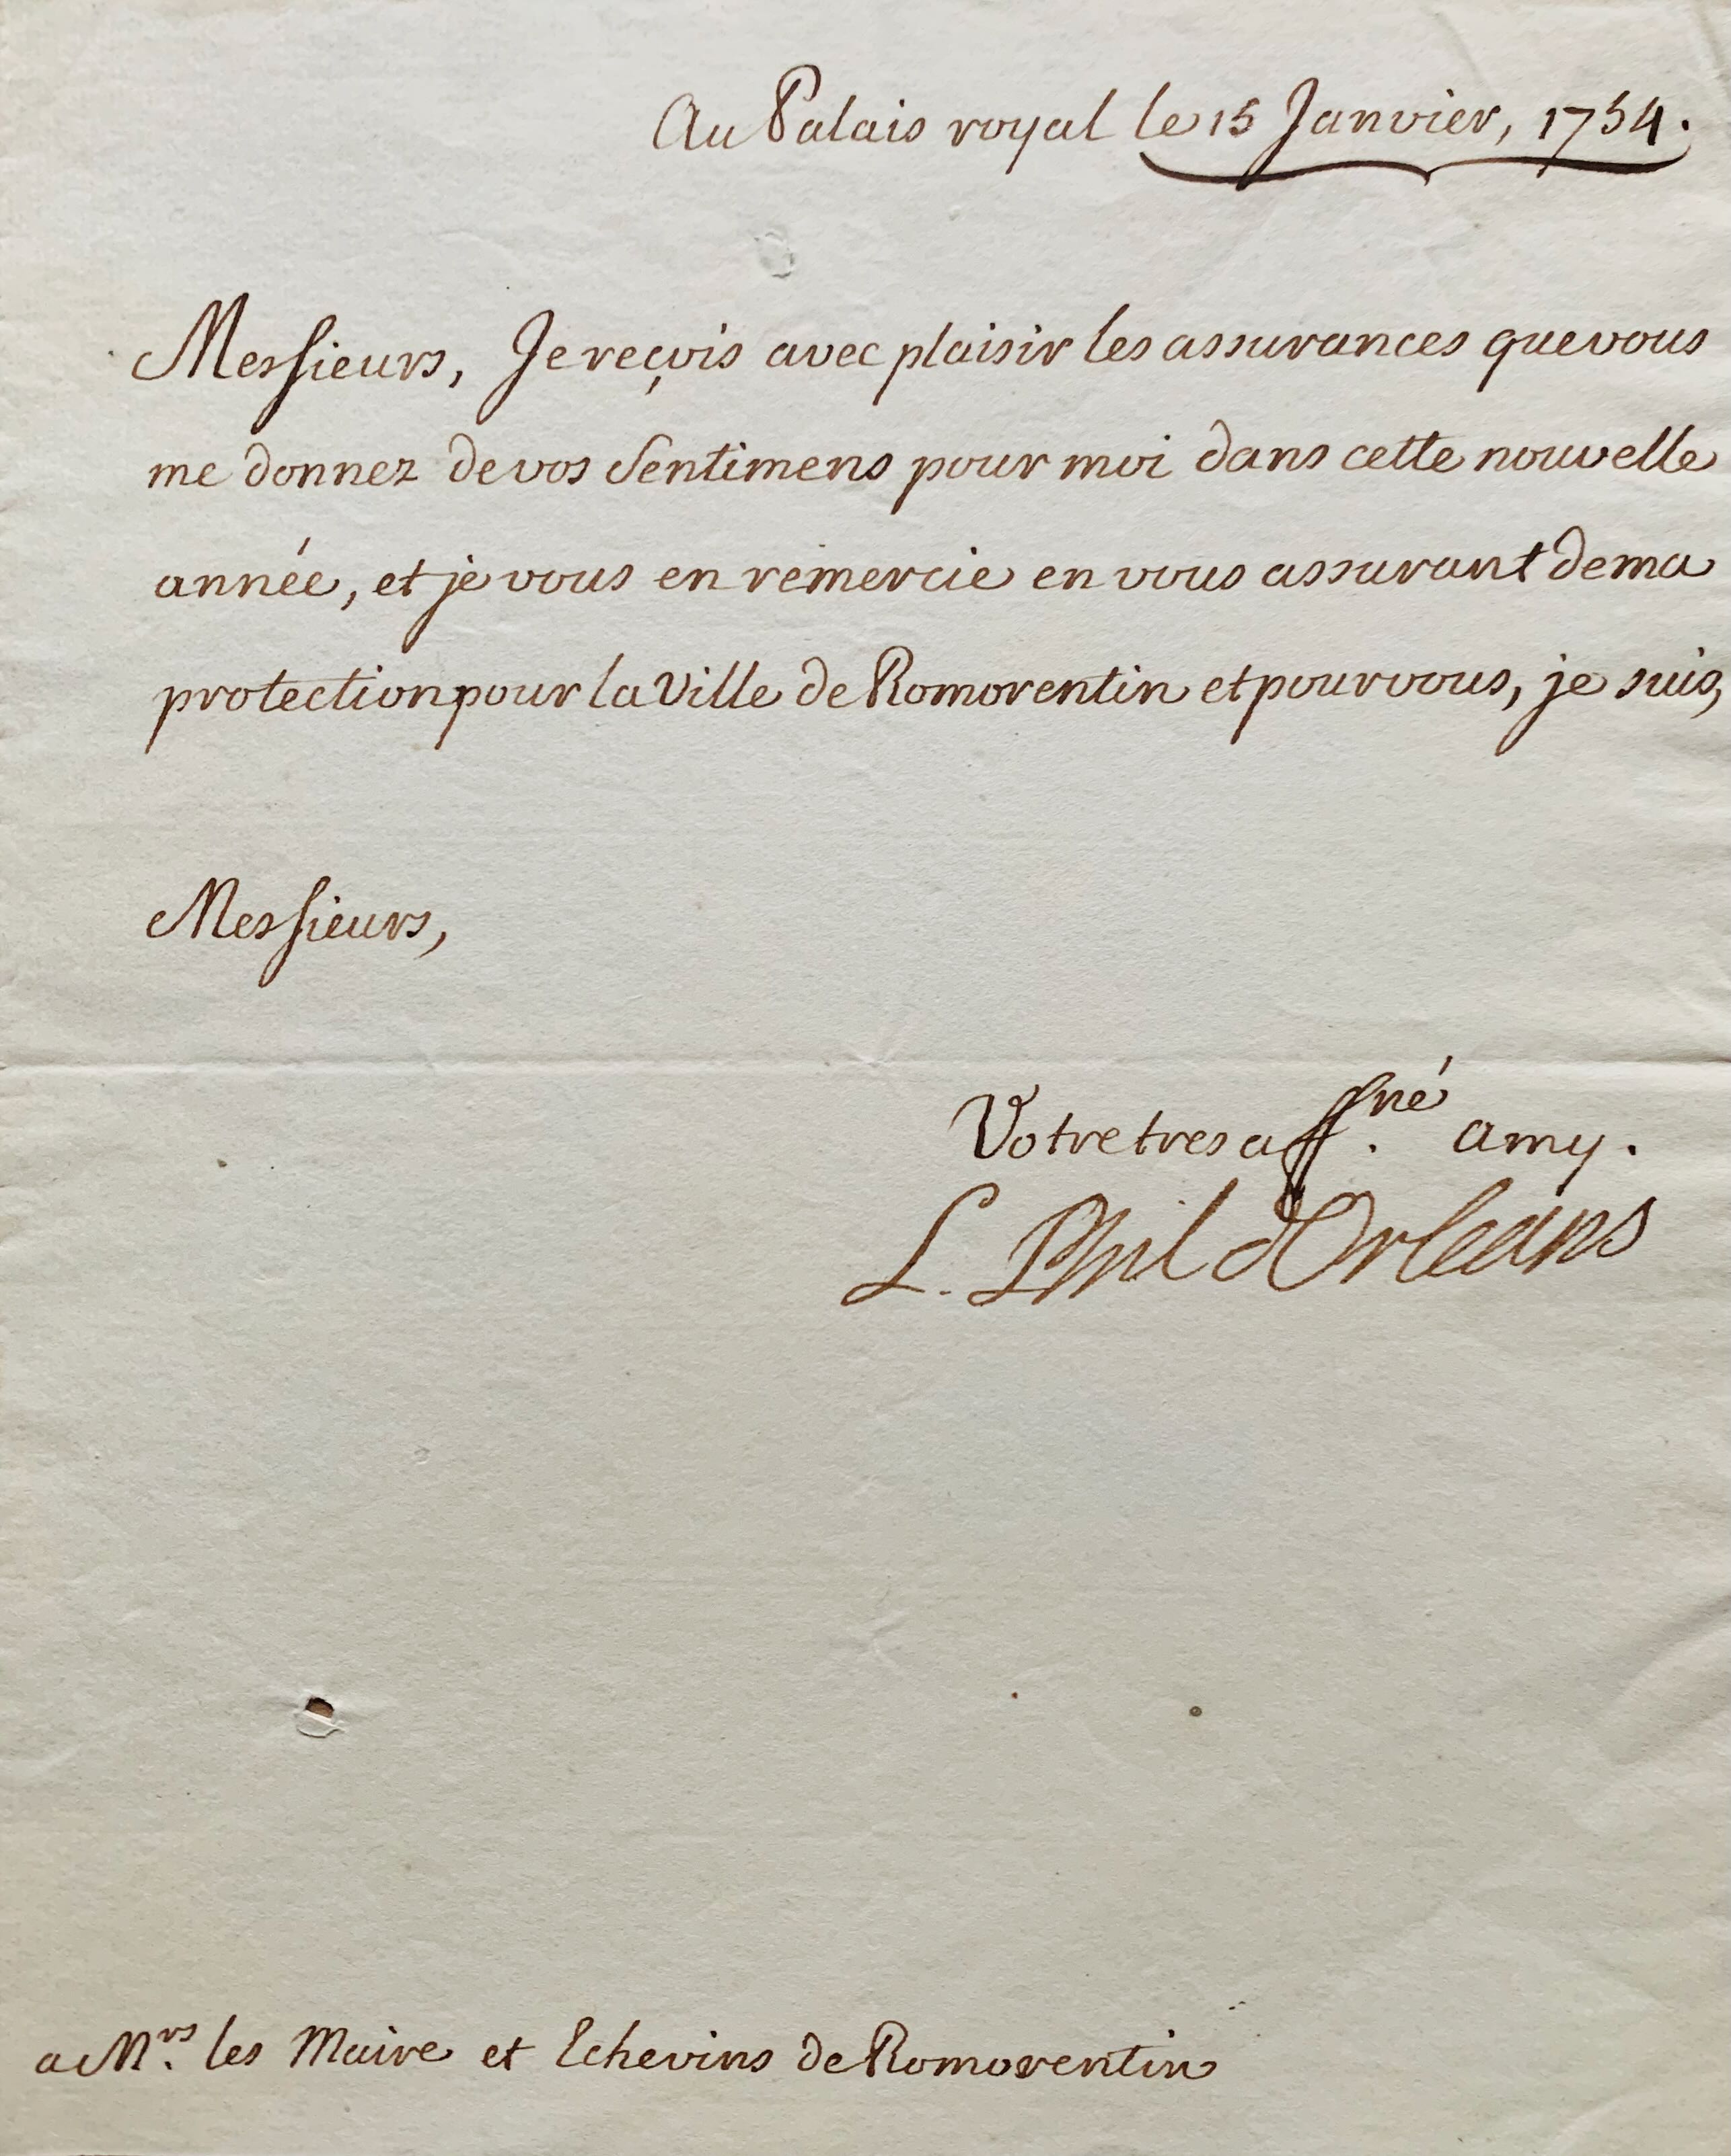 Au Palais royal le 15 Janvier, 1754.
Messieurs, Je reçois avec plaisir les assurances que vous
me donnez de vos Sentimens pour moi dans cette nouvelle
année, et je vous en remercie en vous assurant de ma
protection pour la Ville de Romorentin et pour vous, je suis,
Messieurs,
Votre tres aff.né amy.
L. Phil d'Orleans
a Mrs. les Maire et Echevins de Romorentin